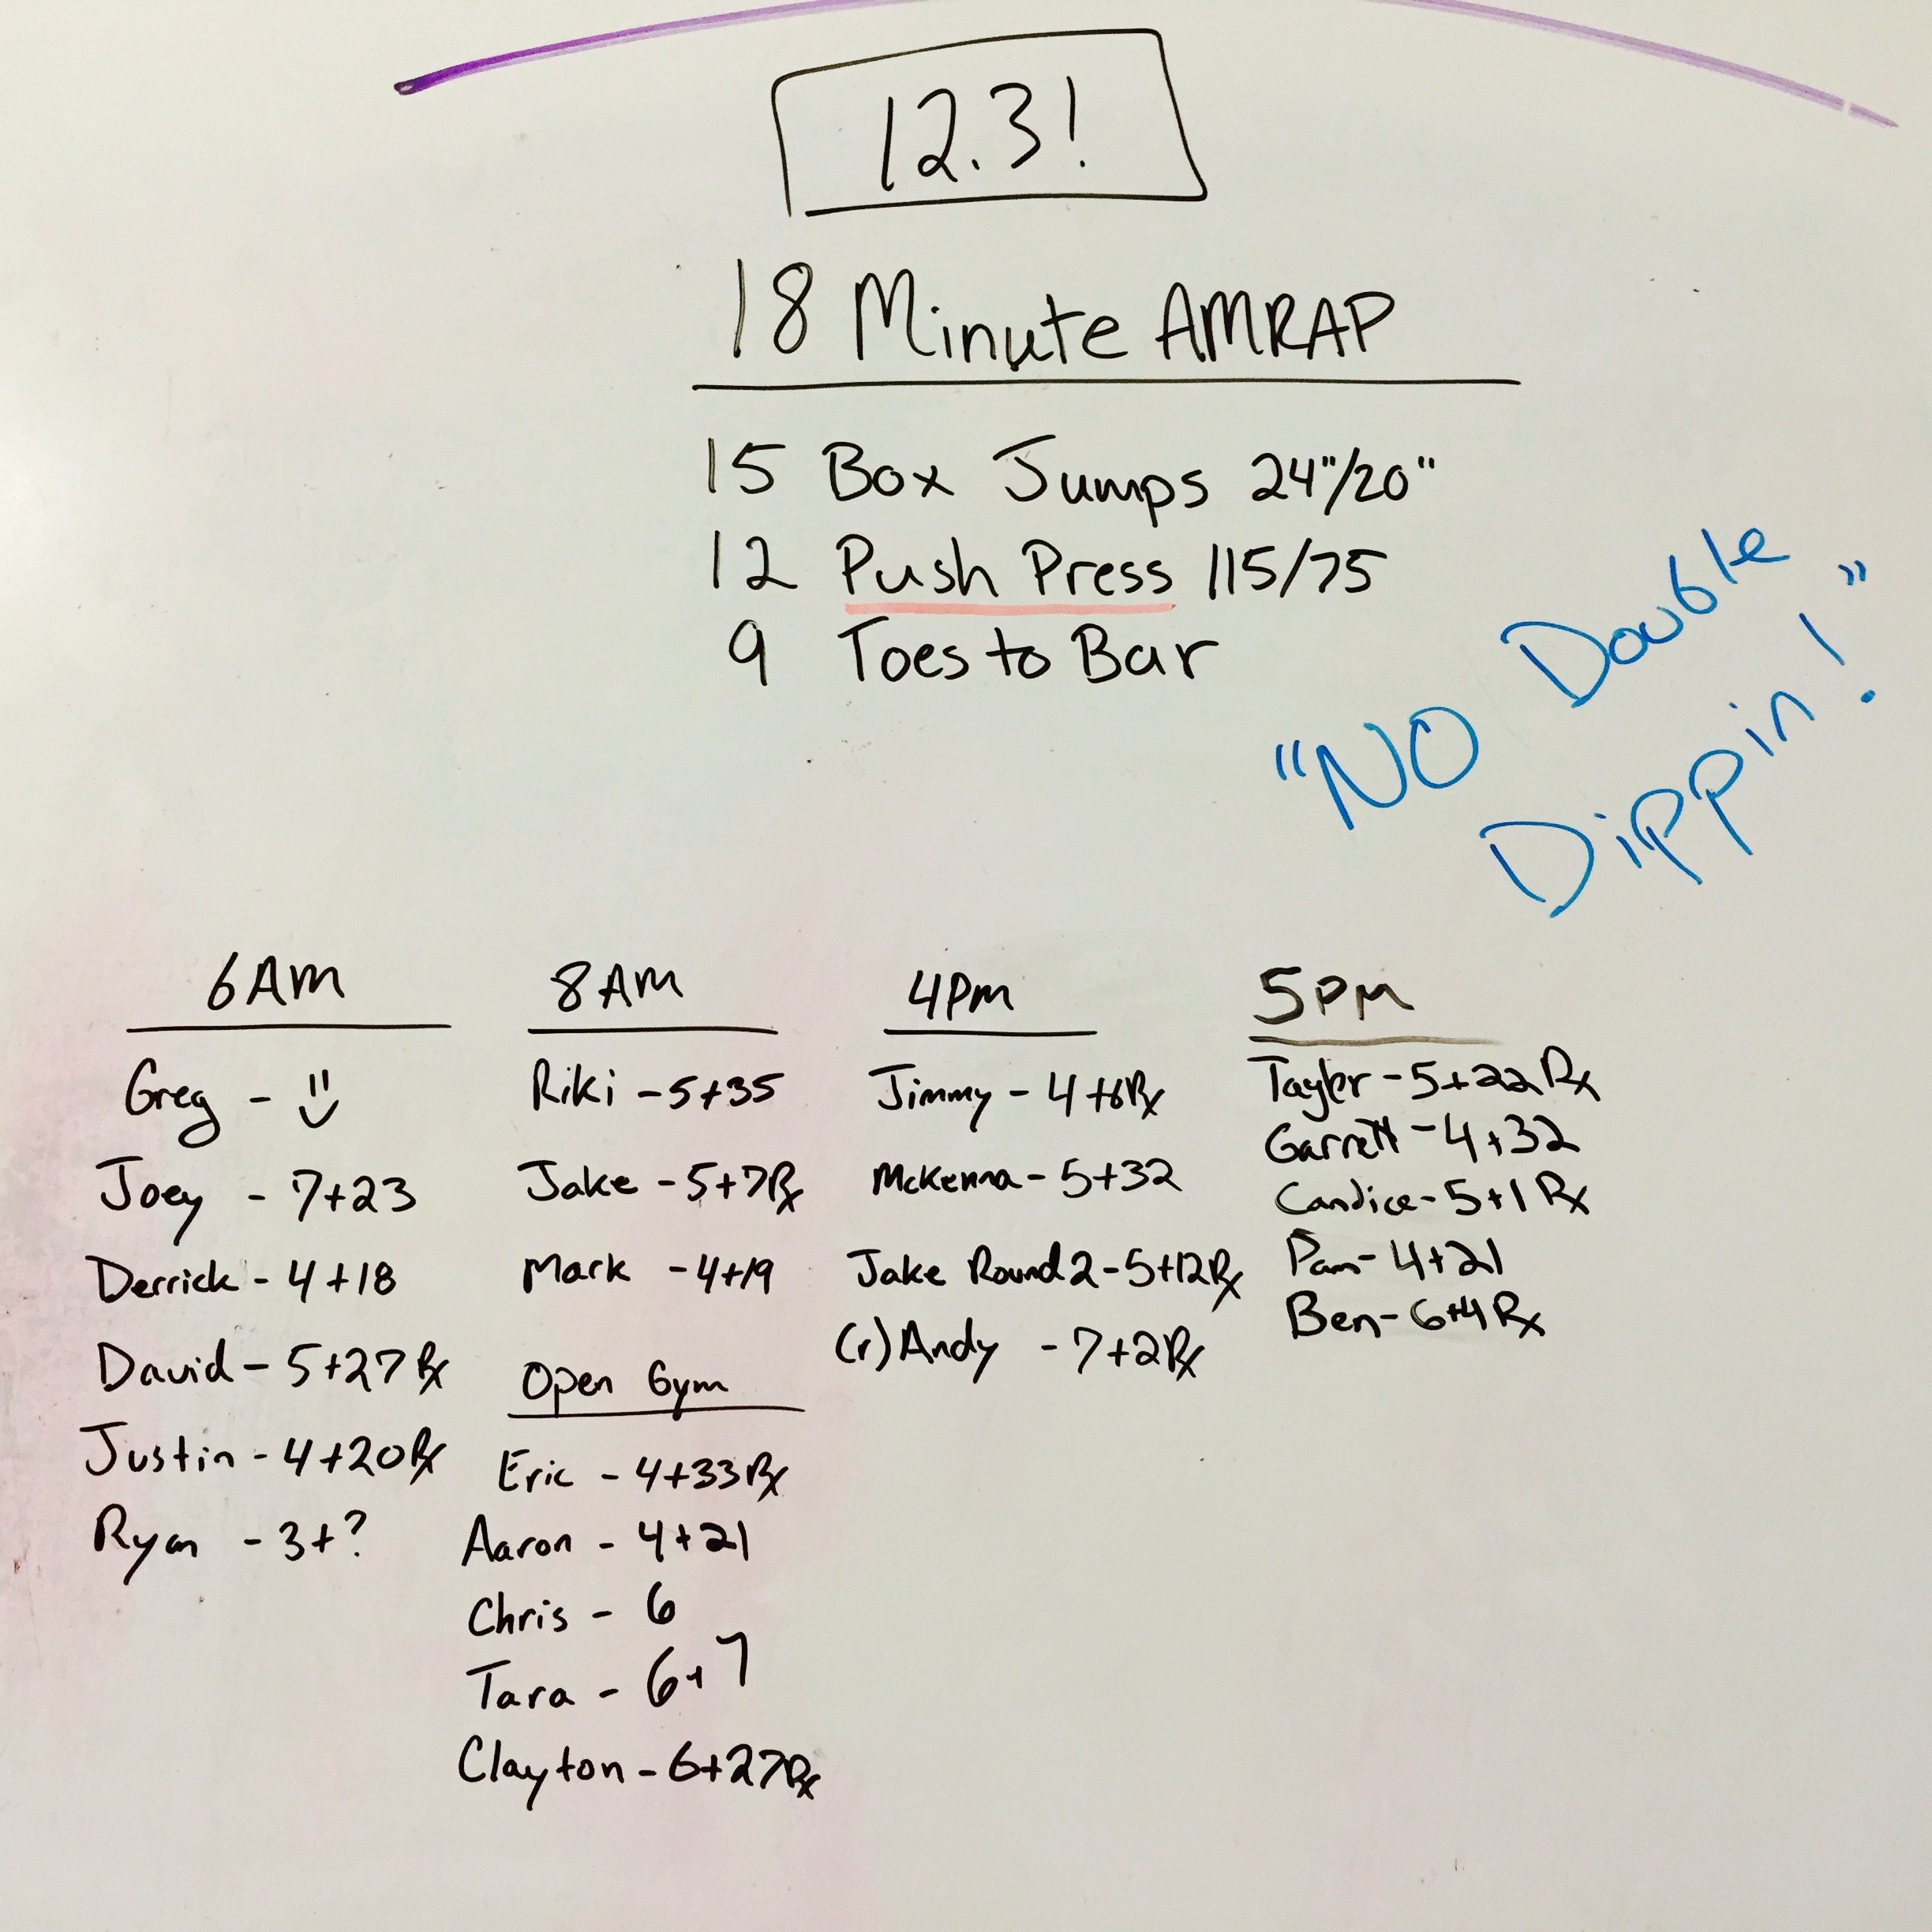 12.3!
18 Minute AMRAP
15 Box Jumps 24"/20"
12 Push Press 115/75
9 Toes to Bar
"NO Double
Dippin!"
6AM
Greg -
Joey - 7+23
Derrick - 4+18
David - 5+27 Rx
Justin - 4+20 Rx
Ryan - 3+?
8AM
Riki - 5+35
Jake - 5+7 Rx
Mark - 4+19
Open Gym
Eric - 4+33 Rx
Aaron - 4+21
Chris - 6
Tara - 6+7
Clayton - 6+27 Rx
4PM
Jimmy - 4+6 Rx
McKenna - 5+32
Jake Round 2 - 5+12 Rx
(r) Andy - 7+2 Rx
5PM
Taylor - 5+22 Rx
Garrett - 4+32
Candice - 5+1 Rx
Pam - 4+21
Ben - 6+4 Rx